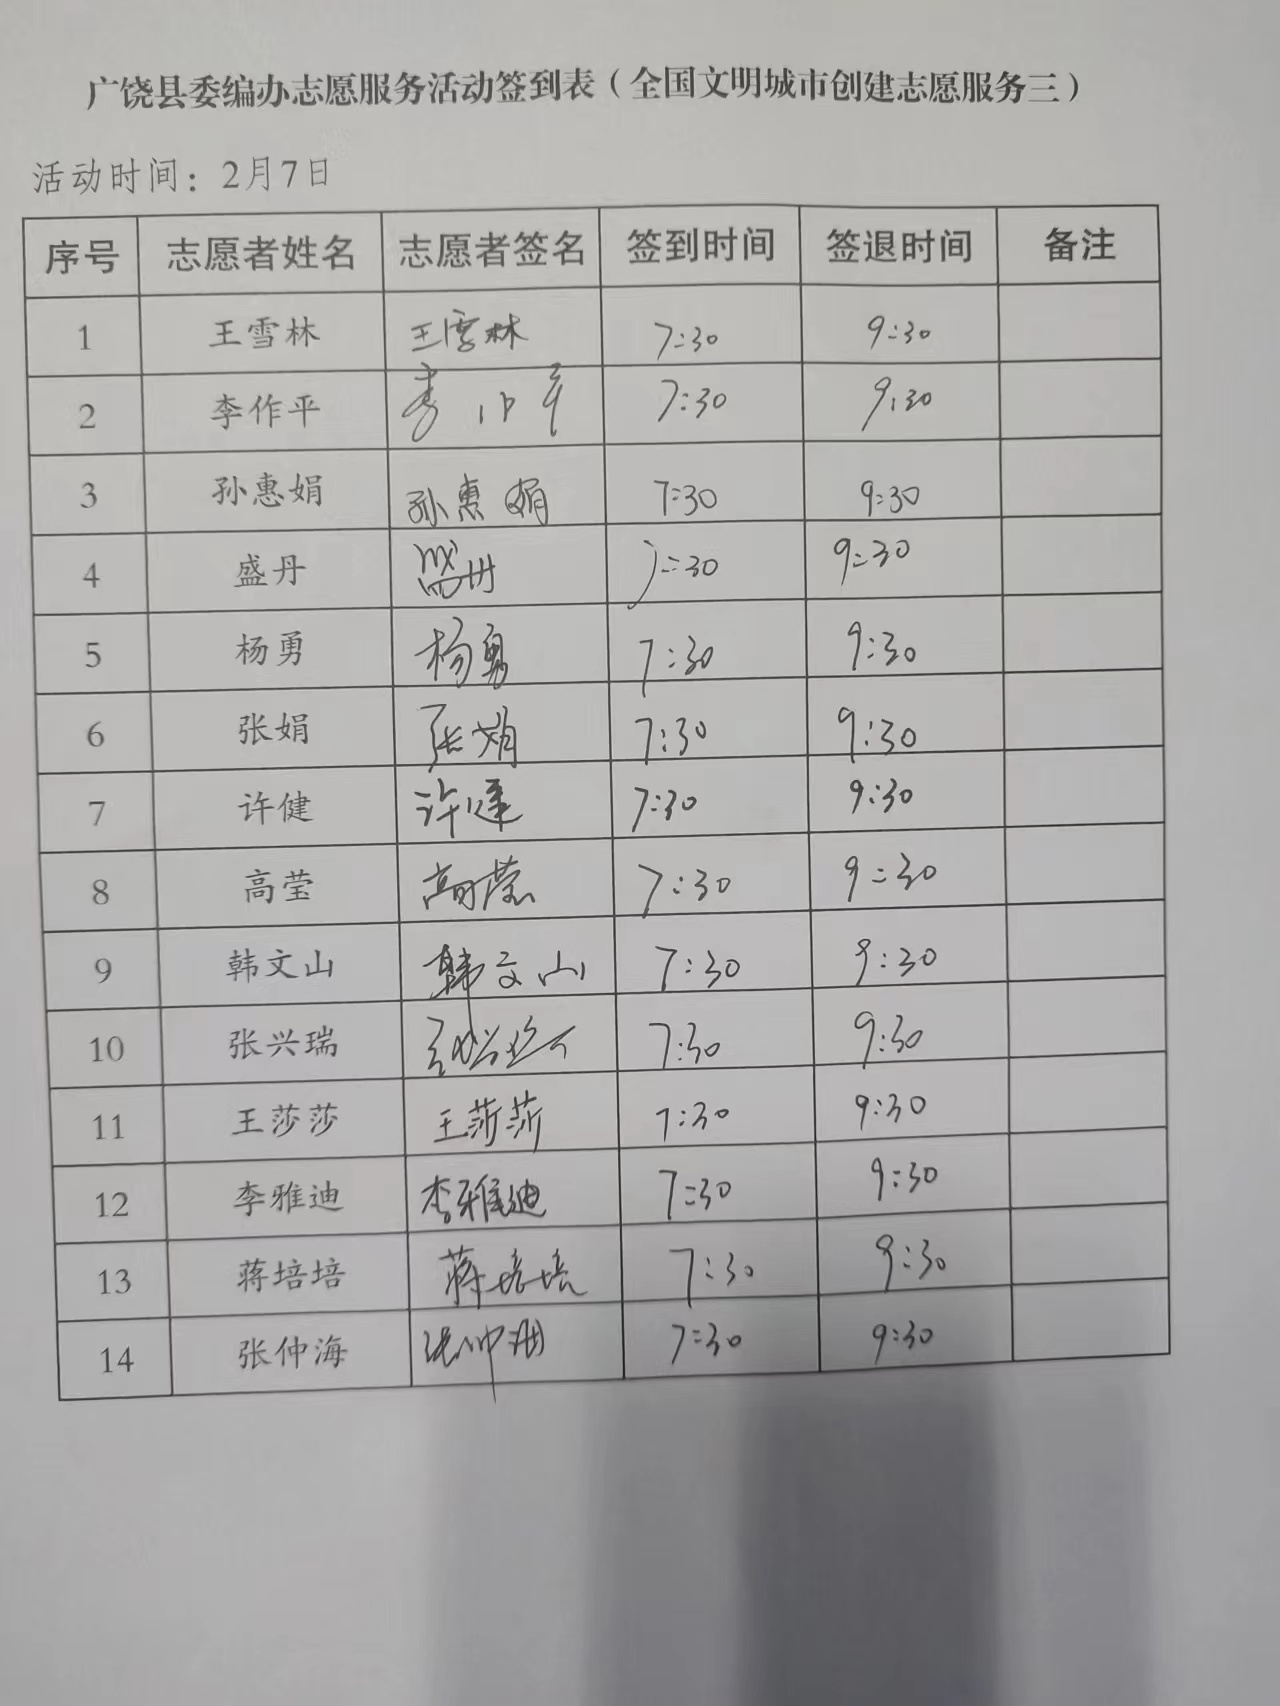 广饶县委编办志愿服务活动签到表（全国文明城市创建志愿服务三）
活动时间：2月7日
序号 志愿者姓名 志愿者签名 签到时间 签退时间 备注
1 王雪林 王雪林 7:30 9:30
2 李作平 李作平 7:30 9:30
3 孙惠娟 孙惠娟 7:30 9:30
4 盛丹 盛丹 7:30 9:30
5 杨勇 杨勇 7:30 9:30
6 张娟 张娟 7:30 9:30
7 许健 许健 7:30 9:30
8 高莹 高莹 7:30 9:30
9 韩文山 韩文山 7:30 9:30
10 张兴瑞 张兴瑞 7:30 9:30
11 王莎莎 王莎莎 7:30 9:30
12 李雅迪 李雅迪 7:30 9:30
13 蒋培培 蒋培培 7:30 9:30
14 张仲海 张仲海 7:30 9:30